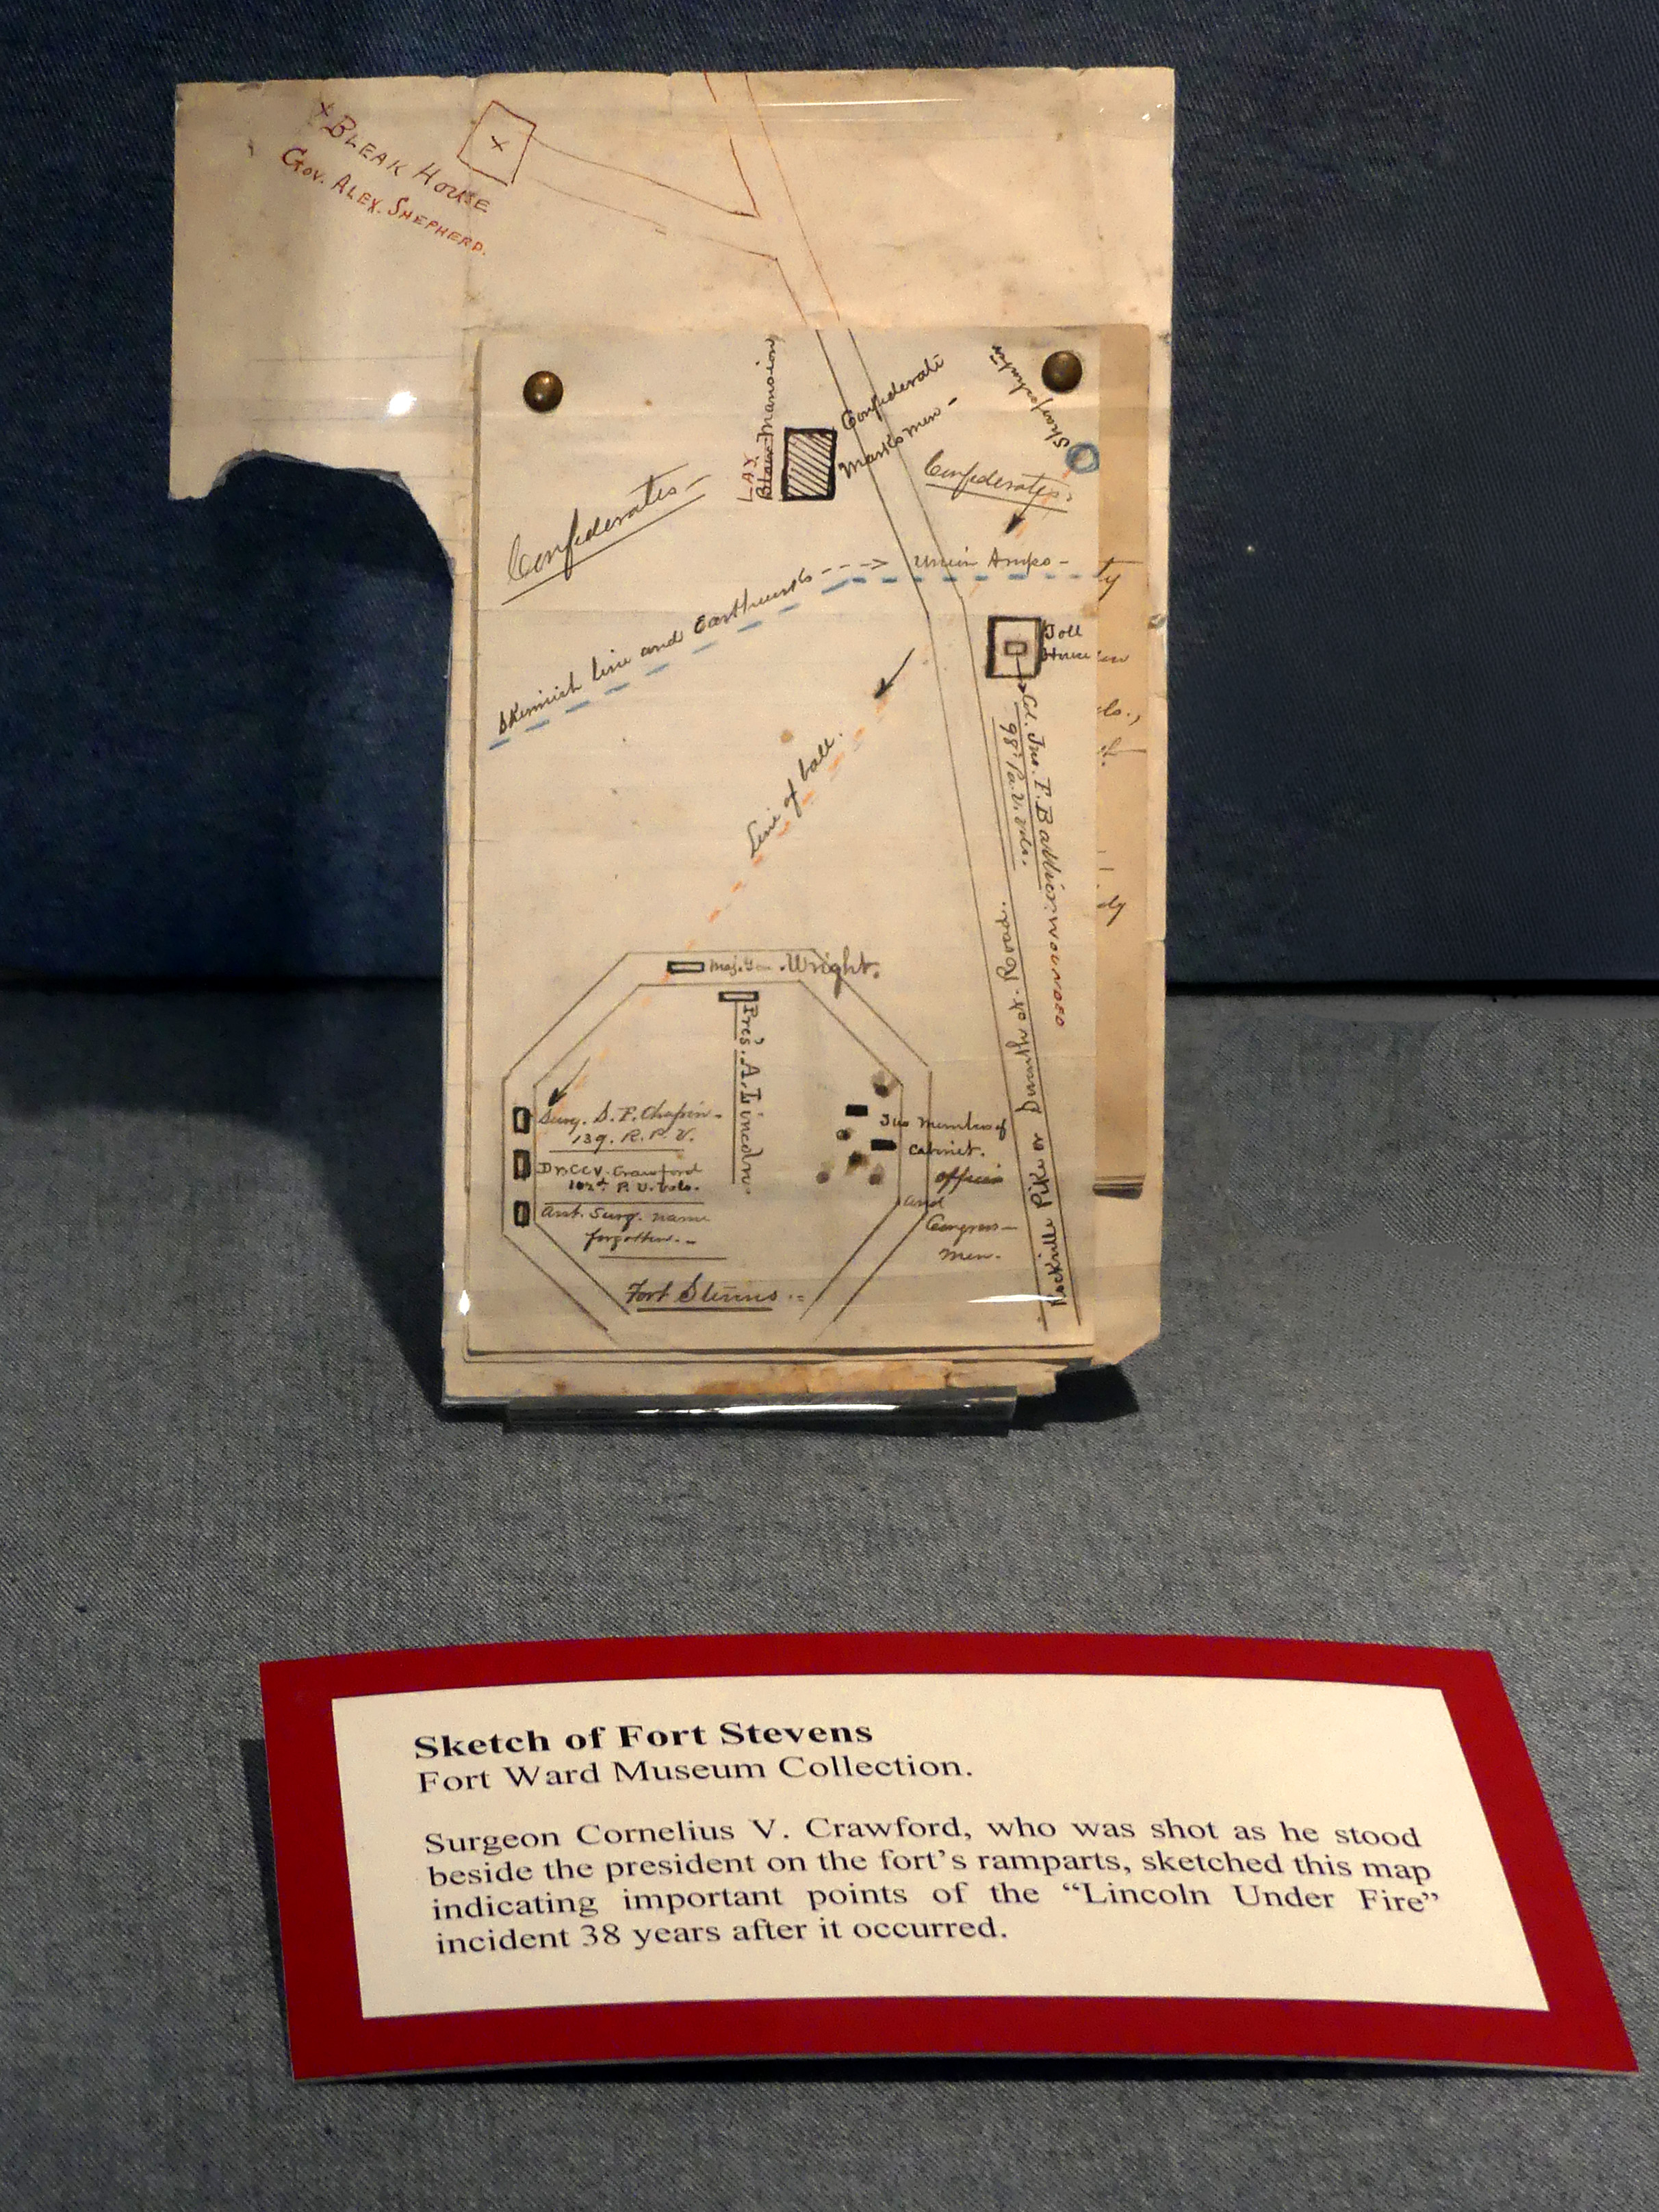 x BLEAK HOUSE
GOV. ALEX. SHEPHERD.
x
LAY
Blair Mansion
Confederate
Marksmen -
Sharpshooter
Confederates -
Confederates -
Skirmish line and Earthworks --->
Union Troops -
ty
Toll
House
Col. Jno. F. Ballier: WOUNDED
98" Pa. V. Vols.
Line of ball.
Maj. Gen. Wright.
Pres. A. Lincoln.
Surg. S. F. Chapin -
139. R. P. V.
Dr. C.C.V. Crawford
102d P. V. Vols.
Asst. Surg. name
forgotten. -
Two Members of
Cabinet.
officers
and
Congress-
men.
Fort Stevens
Rockville Pike or Seventh St. Road.
Sketch of Fort Stevens
Fort Ward Museum Collection.
Surgeon Cornelius V. Crawford, who was shot as he stood
beside the president on the fort's ramparts, sketched this map
indicating important points of the “Lincoln Under Fire”
incident 38 years after it occurred.